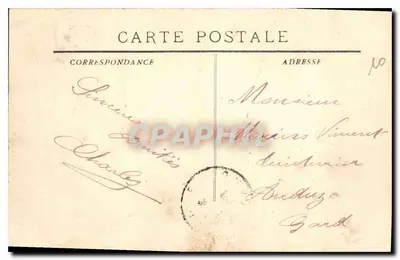 CARTE POSTALE
CORRESPONDANCE
ADRESSE
10
Sincères
Amitiés
Charles
Monsieur
Vincent
Anduze
Gard
CPAPHIL.com